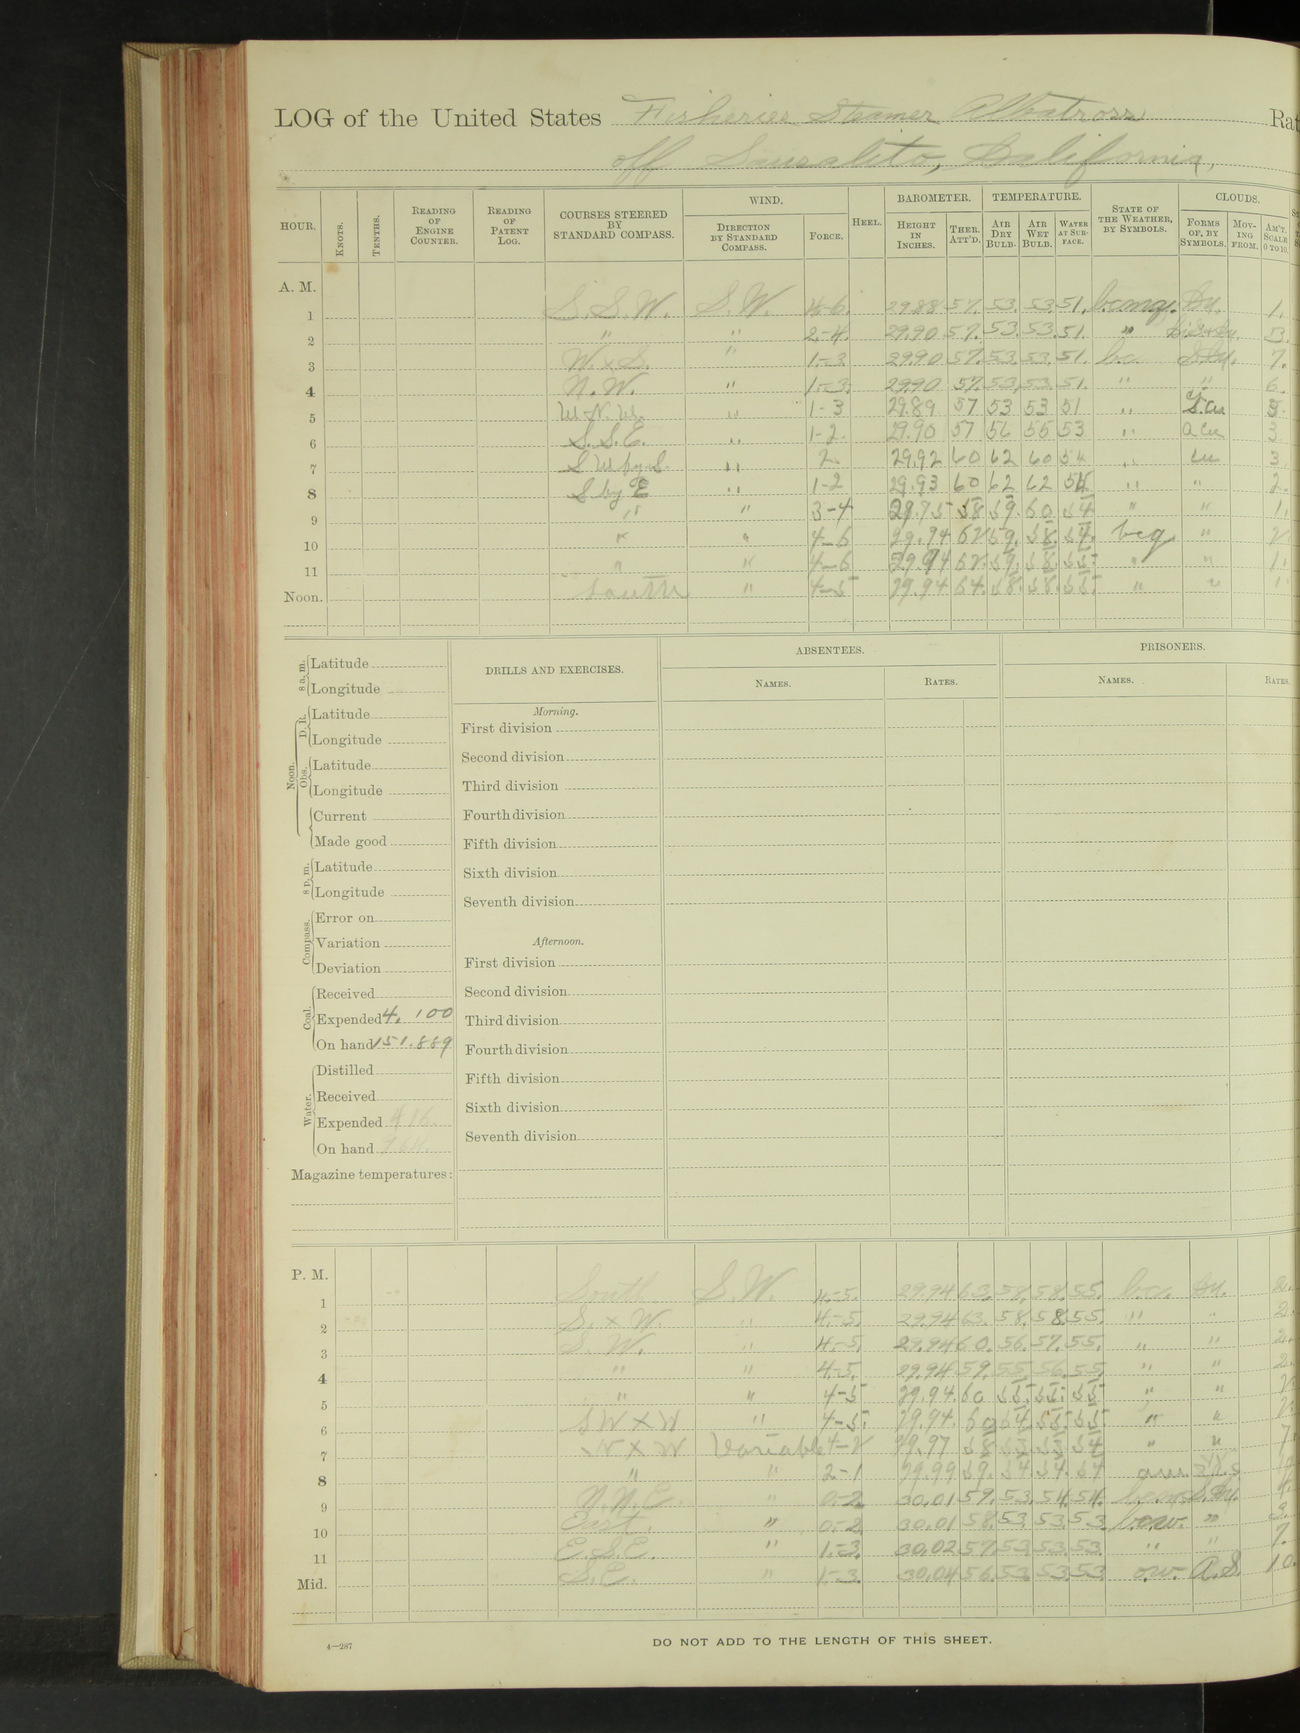 LOG of the United States Fisheries Steamer Albatross Rat
off Sausalito, California,
HOUR. KNOTS. TENTHS. READING OF ENGINE COUNTER. READING OF PATENT LOG. COURSES STEERED BY STANDARD COMPASS. WIND. DIRECTION BY STANDARD COMPASS. FORCE. HEEL. BAROMETER. HEIGHT IN INCHES. THER. ATT'D. TEMPERATURE. AIR DRY BULB. AIR WET BULB. WATER AT SURFACE. STATE OF THE WEATHER, BY SYMBOLS. CLOUDS. FORMS OF, BY SYMBOLS. MOVING FROM. AM'T. SCALE 0 TO 10.
A. M.
1 S.S.W. S.W. 4-6. 29.88 57. 53. 53. 51. bcmq. Cu. 1.
2 " " 2-4. 29.90 57. 53. 53. 51. " 3.
3 W.xS. " 1-3 29.90 57. 53. 53. 51. bc. 7.
4 N.W. " 1-3. 29.90 57. 53. 53. 51. " " 6.
5 W.N.W. " 1-3 29.89 57 53 53 51 " S.Cu 3.
6 S.S.E. " 1-2. 29.90 57 56 55 53 " a cu 3.
7 S W by S. " 2. 29.92 60 62 60 54 " cu 3.
8 S by E " 1-2 29.93 60 62 62 54 " " 2.
9 " " 3-4 29.95 58 59. 60. 54 " " 1.
10 " " 4-6 29.94 62 59. 58. 54. bcq " 2
11 " " 4-6 29.94 62. 59. 58. 55. " " 1.
Noon. South " 4-5 29.94 64. 58. 58. 55. " " 1.
8 a. m. Latitude
Longitude
Noon. D. R. Latitude
Longitude
Obs. Latitude
Longitude
Current
Made good
8 p. m. Latitude
Longitude
Compass. Error on
Variation
Deviation
Coal. Received
Expended 4. 100
On hand 151.889
Water. Distilled
Received
Expended
On hand
Magazine temperatures:
DRILLS AND EXERCISES.
Morning.
First division
Second division
Third division
Fourth division
Fifth division
Sixth division
Seventh division
Afternoon.
First division
Second division
Third division
Fourth division
Fifth division
Sixth division
Seventh division
ABSENTEES.
NAMES. RATES.
PRISONERS.
NAMES. RATES.
P. M.
1 South S.W. 4-5. 29.94 63. 58. 58. 55. bc. Cu. 2.
2 S.xW. " 4-5. 29.94 63. 58. 58. 55. " " 2.
3 S.W. " 4-5. 29.94 60. 56. 57. 55. " " 2.
4 " " 4-5. 29.94 59. 55. 56. 55. " " 2.
5 " " 4-5 29.94. 60 55. 55. 55 " " 2
6 SW x W " 4-5. 29.94. 60 54. 55. 55 " "
7 W x W Variable 4-2 29.97 58 55 55 54 " " 7
8 " " 2-1 29.99 59. 54 54. 54
9 N.N.E. " 0-2 30.01 59. 53. 54. 54.
10 East. " 0-2 30.01 58. 53. 53. 53 "
11 E.S.E. " 1-3. 30.02 57. 53. 53. 53. " " 7.
Mid. S.E. " 1-3. 30.04 56. 53. 53. 53 o.w. A.S. 10.
4—287
DO NOT ADD TO THE LENGTH OF THIS SHEET.